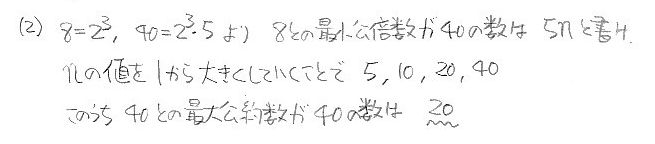 (2) 8=2³, 40=2³·5 より 8との最小公倍数が40の数は 5nと書け.
nの値を1から大きくしていくことで 5, 10, 20, 40
このうち 40との最大公約数が40の数は 20